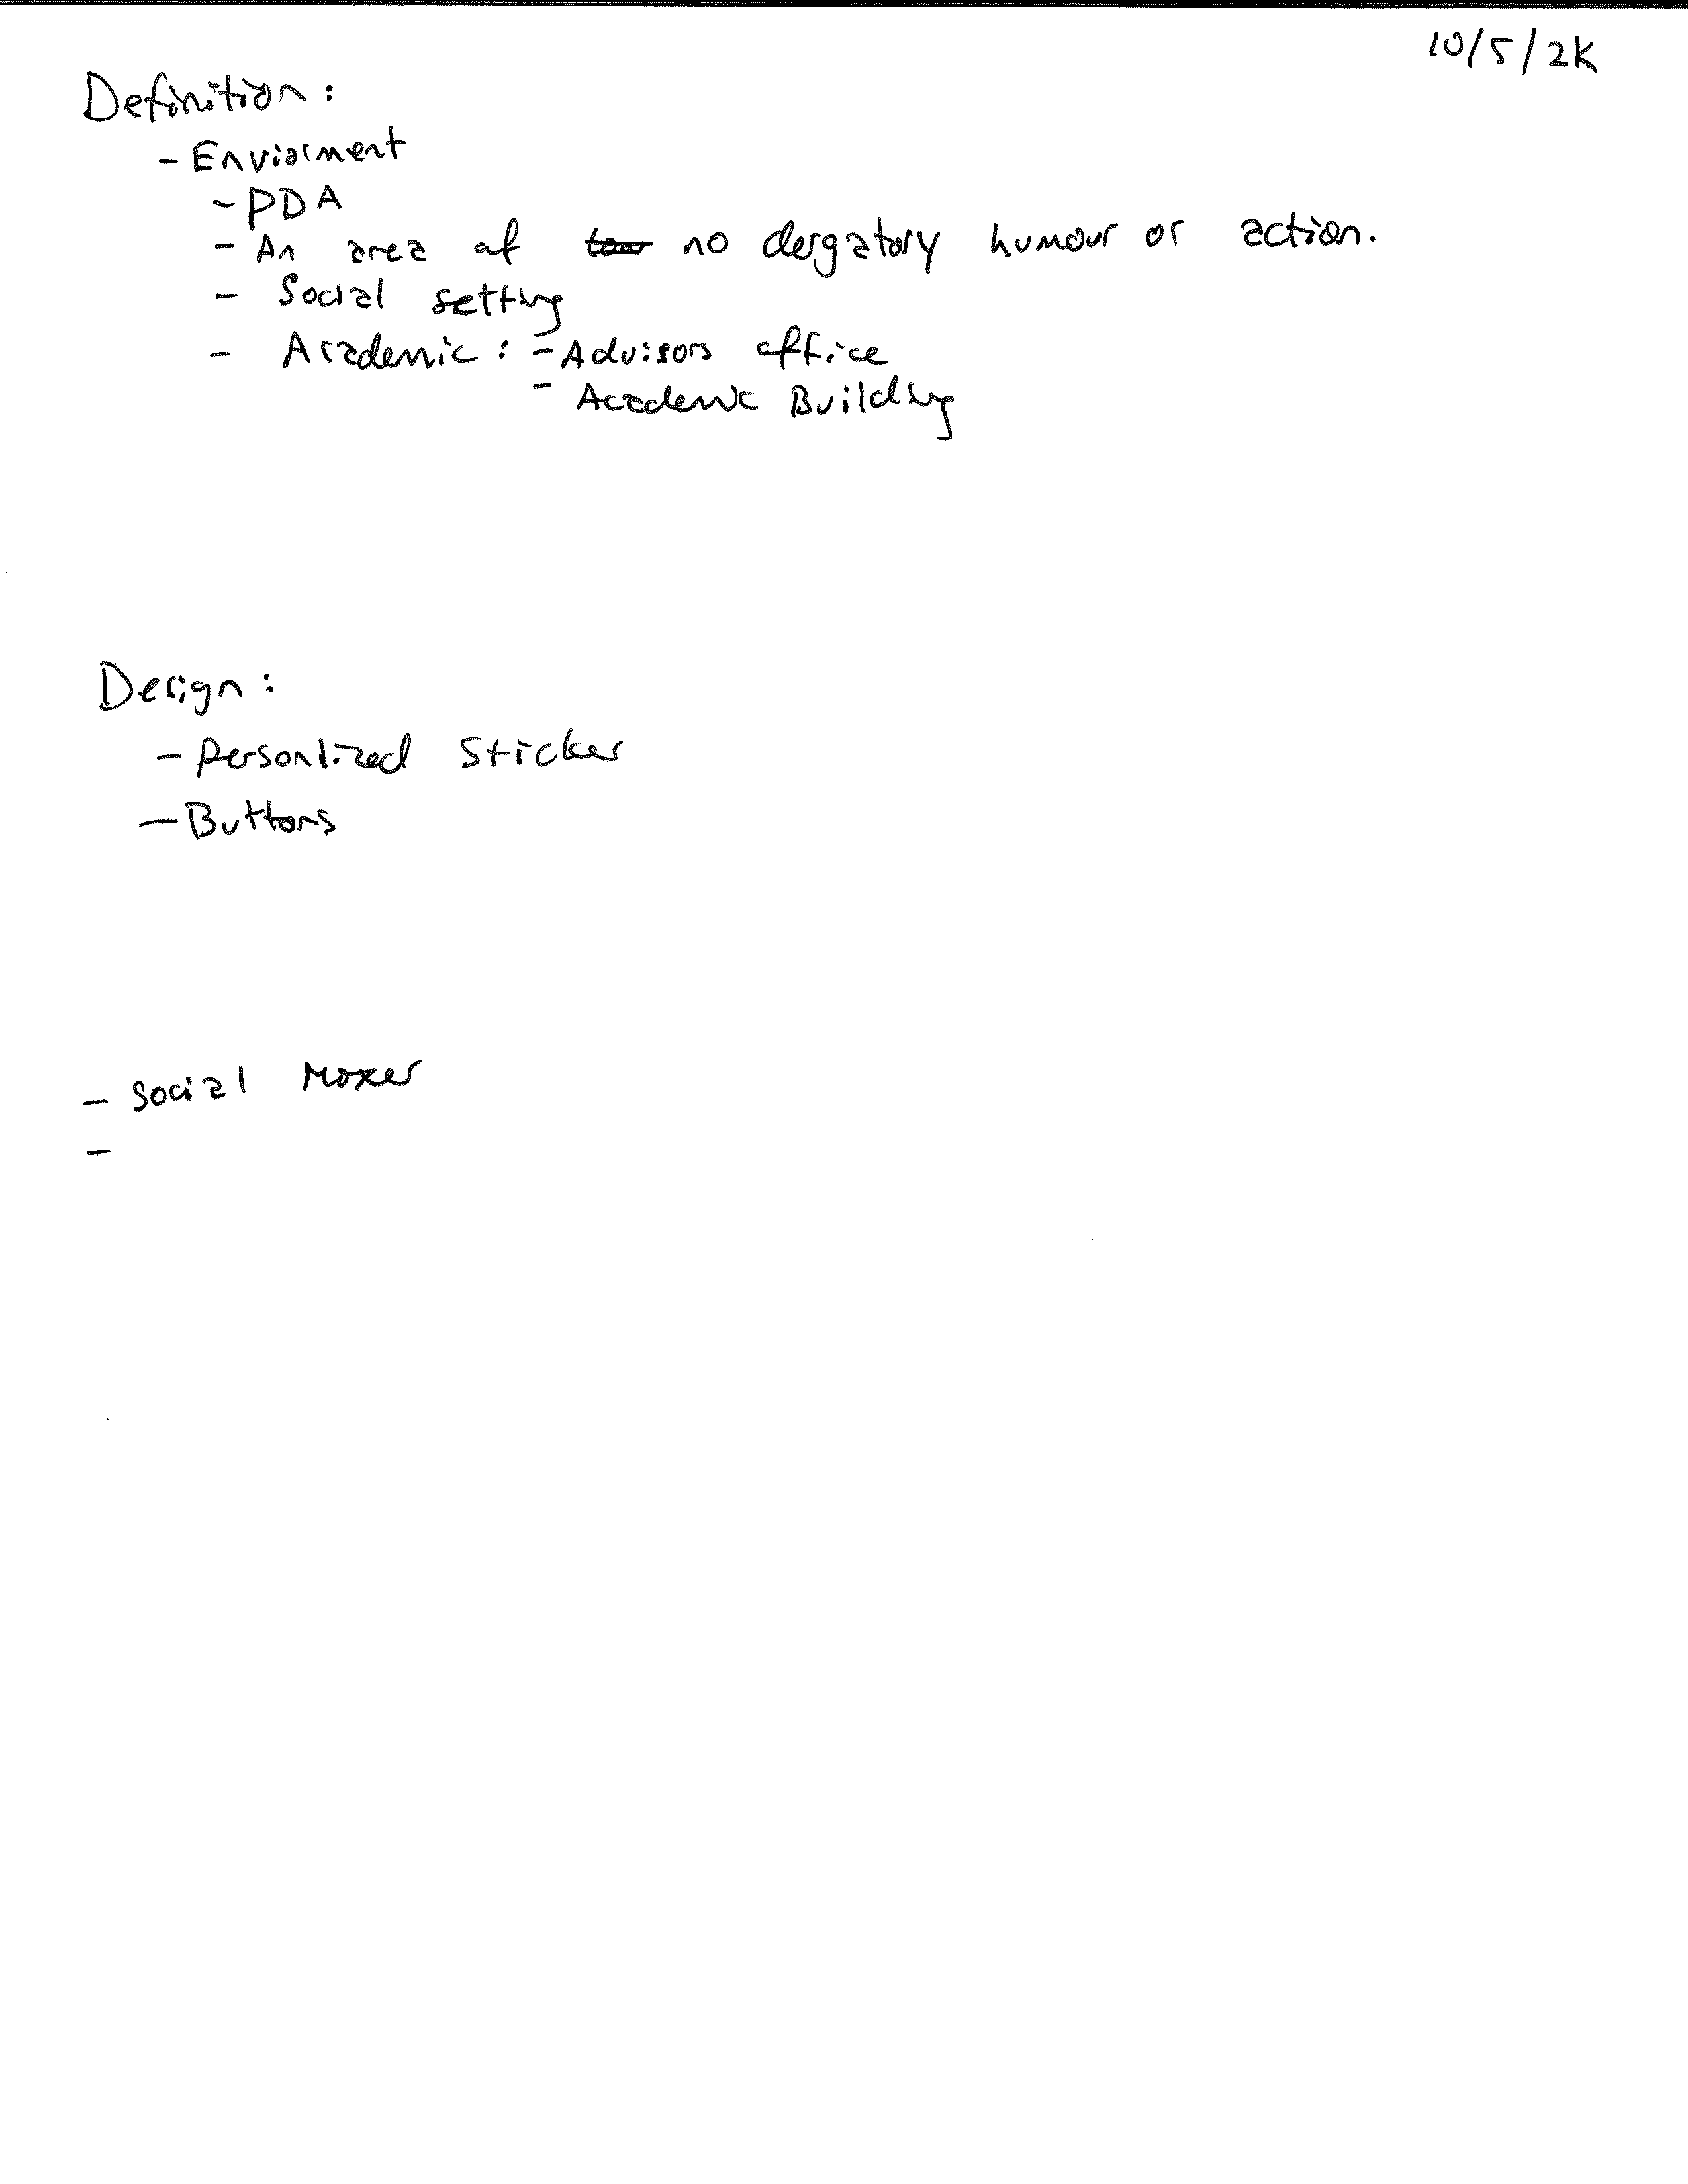 10/5/2K
Definition:
- Enviorment
- PDA
- An area of no dergatory humour or action.
- Social setting
- Academic: - Advisors office
- Academic Building
Design:
- Personalized Sticker
- Buttons
- Social Moxer
-